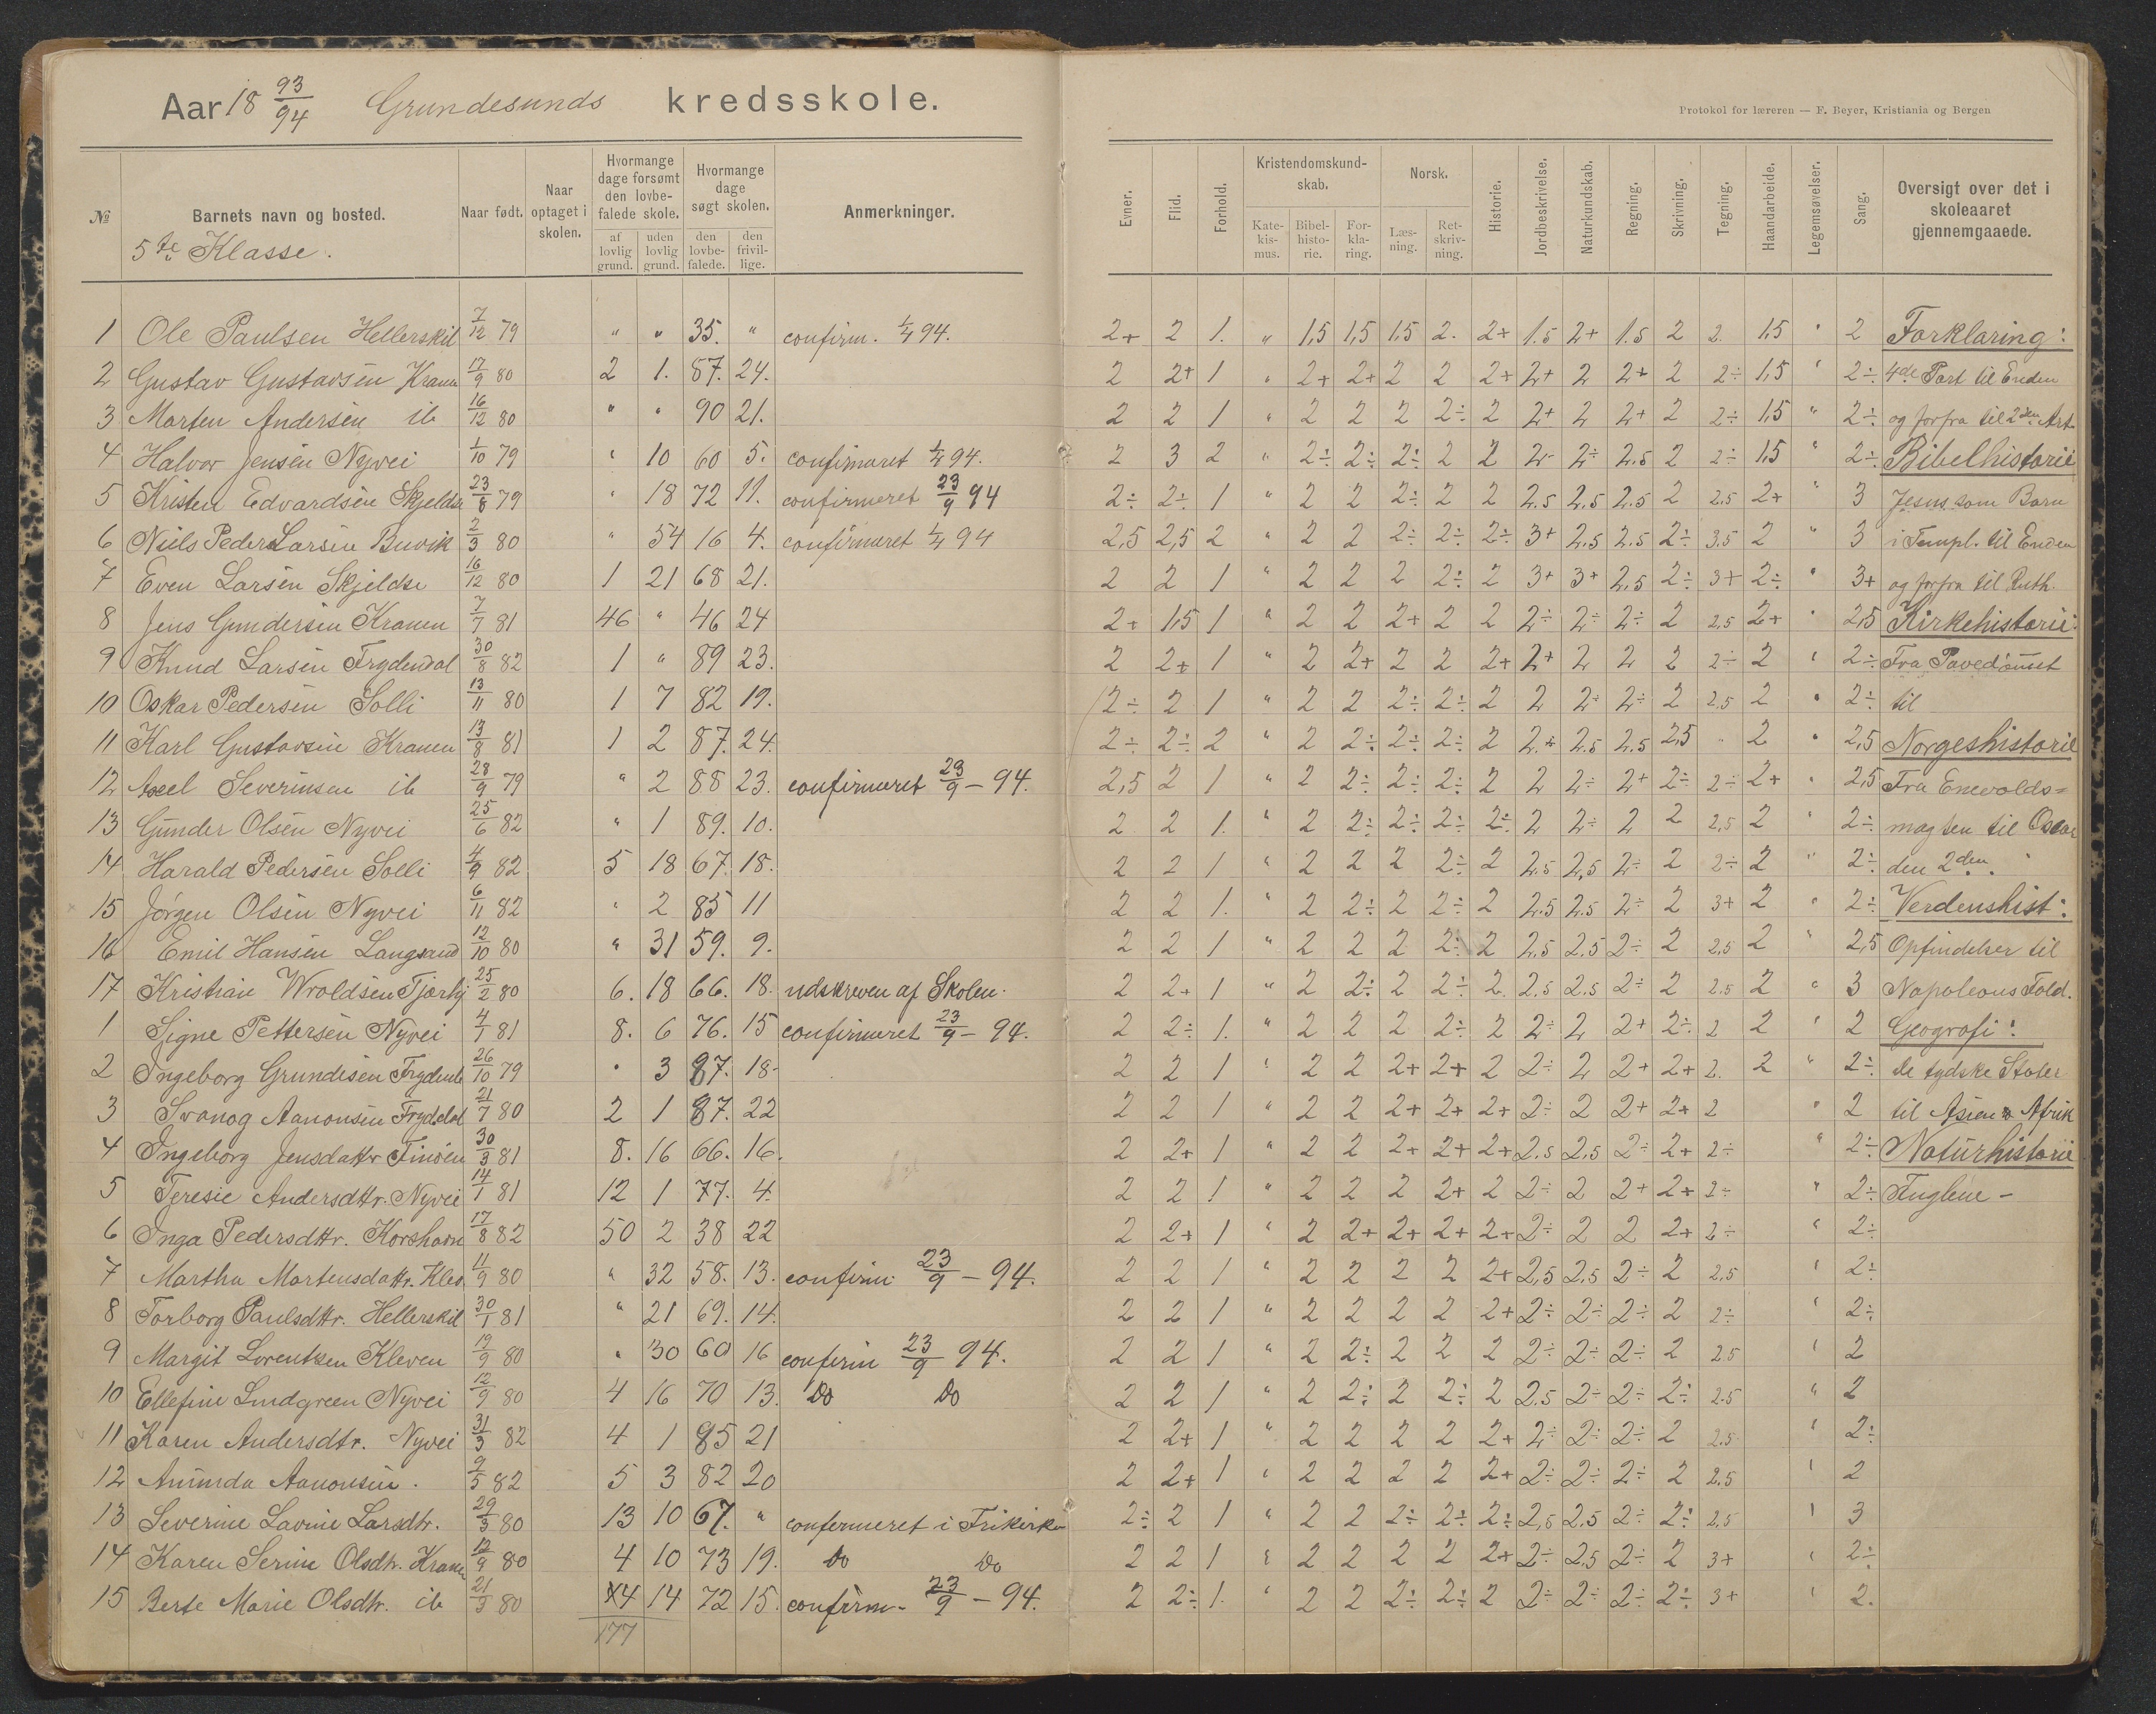 Aar 18 93/94 Grundesunds kredsskole.
Protokol for læreren — F. Beyer, Kristiania og Bergen
№ | Barnets navn og bosted. | Naar født. | Naar optaget i skolen. | Hvormange dage forsømt den lovbefalede skole. | Hvormange dage søgt skolen. | Anmerkninger. | Evner. | Flid. | Forhold. | Kristendomskundskab. | Norsk. | Historie. | Jordbeskrivelse. | Naturkundskab. | Regning. | Skrivning. | Tegning. | Haandarbeide. | Legemsøvelser. | Sang. | Oversigt over det i skoleaaret gjennemgaaede.
af lovlig grund. | uden lovlig grund. | den lovbefalede. | den frivillige. | Katekismus. | Bibelhistorie. | Forklaring. | Læsning. | Retskrivning.
5te Klasse.
1 Ole Paulsen Hellerskil 7/12 79 " " 35. " confirm. 1/4 94. 2+ 2 1. " 1,5 1,5 1,5 2. 2+ 1.5 2+ 1.5 2 2. 1,5 " 2 Forklaring:
2 Gustav Gustavsen Kranen 17/9 80 2 1. 87. 24. 2 2+ 1 " 2+ 2+ 2 2 2+ 2+ 2 2+ 2 2÷ 1,5 " 2÷ 4de Part til Enden
3 Morten Andersen ib 16/12 80 " " 90 21. 2 2 1 " 2 2 2 2÷ 2 2+ 2 2+ 2 2÷ 1,5 " 2÷ og forfra til 2den Art.
4 Halvor Jensen Nyvei 1/10 79 " 10 60 5. confirmeret 1/4 94. 2 3 2 " 2÷ 2÷ 2÷ 2 2 2- 2÷ 2.5 2 2÷ 1,5 " 2÷ Bibelhistorie
5 Kristen Edvardsen Skjeldsø 23/8 79 " 18 72 11. confirmeret 23/9 94 2÷ 2÷ 1 " 2 2 2÷ 2 2 2.5 2.5 2.5 2 2.5 2+ " 3 Jesus som Barn
6 Niels Peder Larsen Buvik 2/3 80 " 54 16 4. confirmeret 1/4 94 2,5 2,5 2 " 2 2 2÷ 2÷ 2÷ 3+ 2.5 2.5 2÷ 3.5 2 " 3 i Templ. til Enden
7 Even Larsen Skjeldsø 16/12 80 1 21 68 21. 2 2 1 " 2 2 2 2÷ 2 3+ 3+ 2,5 2÷ 3+ 2÷ " 3+ og forfra til Ruth.
8 Jens Gundersen Kranen 7/7 81 46 " 46 24 2+ 1,5 1 " 2 2 2+ 2 2 2÷ 2÷ 2÷ 2 2,5 2+ " 2,5 Kirkehistorie:
9 Knud Larsen Frydendal 30/8 82 1 " 89 23. 2 2+ 1 " 2 2+ 2 2 2+ 2+ 2 2 2 2÷ 2 " 2÷ Fra Pavedømet
10 Oskar Pedersen Solli 13/11 80 1 7 82 19. 2÷ 2 1 " 2 2 2÷ 2÷ 2 2 2÷ 2÷ 2 2,5 2 " 2÷ til
11 Karl Gustavsen Kranen 13/8 81 1 2 87. 24. 2÷ 2÷ 2 " 2 2÷ 2÷ 2÷ 2 2.+ 2.5 2.5 2,5 " 2 " 2,5 Norgeshistorie
12 Axel Severinsen ib 28/9 79 " 2 88 23. confirmeret 23/9 - 94. 2,5 2 1 " 2 2÷ 2÷ 2÷ 2 2 2÷ 2+ 2÷ 2÷ 2+ " 2,5 Fra Enevolds=
13 Gunder Olsen Nyvei 25/6 82 " 1 89. 10. 2 2 1. " 2 2÷ 2÷ 2÷ 2÷ 2 2÷ 2 2 2,5 2 " 2÷ magten til Oscar
14 Harald Pedersen Solli 4/9 82 5 18 67. 18. 2 2 1 " 2 2 2 2÷ 2 2.5 2,5 2÷ 2 2÷ 2 " 2÷ den 2den.
15 Jørgen Olsen Nyvei 6/11 82 " 2 85 11 2 2 1. " 2 2÷ 2 2÷ 2 2.5 2.5 2÷ 2 3+ 2 " 2÷ Verdenshist:
16 Emil Hansen Langsand 12/10 80 " 31 59. 9. 2 2 1 " 2 2 2 2÷ 2 2.5 2.5 2÷ 2 2.5 2 " 2,5 Opfindelser til
17 Kristian Wroldsen 25/2 80 6. 18 66. 18. udskreven af Skolen. 2 2+ 1 " 2 2÷ 2 2÷ 2. 2.5 2.5 2÷ 2 2.5 2 " 3 Napoleons Fald.
1 Signe Pettersen Nyvei 4/1 81 8. 6 76. 15 confirmeret 23/9 - 94. 2 2÷ 1. " 2 2 2 2÷ 2 2÷ 2 2+ 2÷ 2 2 " 2 Geografi:
2 Ingeborg Grundesen 26/10 79 " 3 87. 18- 2 2 1 " 2 2 2+ 2+ 2 2÷ 2 2+ 2+ 2. 2 " 2÷ De tydske Stater
3 Svanog Aanonsen Frydal 21/7 80 2 1 87. 22 2 2 1 " 2 2 2+ 2+ 2+ 2÷ 2 2+ 2+ 2 " 2 til Asien & Afrik
4 Ingeborg Jensdattr 30/3 81 8. 16 66. 16. 2 2+ 1 " 2 2 2+ 2+ 2+ 2.5 2,5 2÷ 2+ 2÷ " 2÷ Naturhistorie
5 Teresie Andersdttr. Nyvei 14/1 81 12 1 77. 4. 2 2 1 " 2 2 2 2+ 2 2÷ 2 2+ 2+ 2÷ " 2÷ Fuglene -
6 Inga Pedersdttr. Korshavn 17/8 82 50 2 38 22 2 2+ 1 " 2 2+ 2+ 2+ 2+ 2÷ 2 2 2+ 2÷ " 2÷
7 Martha Martensdattr. 11/9 80 " 32 58. 13. confirm. 23/9 - 94. 2 2 1 " 2 2 2 2 2+ 2,5 2.5 2÷ 2 2,5 " 2÷
8 Torborg Paulsdttr. Hellerskil 30/1 81 " 21 69. 14. 2 2 1 " 2 2 2 2 2+ 2÷ 2÷ 2÷ 2 2÷ " 2÷
9 Margit Lorentzen Kleven 19/9 80 " 30 60 16 confirm 23/9 94. 2 2 1 " 2 2÷ 2 2 2 2÷ 2÷ 2÷ 2 2.5 " 2
10 Ellefine Lindgreen Nyvei 12/9 80 4 16 70 13. Do Do 2 2 1 " 2 2÷ 2 2÷ 2 2.5 2÷ 2÷ 2÷ 2.5 " 2
11 Karen Andersdtr. Nyvei 31/3 82 4 1 85 21 2 2+ 1 " 2 2 2 2 2+ 2÷ 2÷ 2÷ 2 2.5 " 2÷
12 Aanonsen. 9/5 82 5 3 82 20 2 2+ 1 " 2 2 2 2 2+ 2÷ 2÷ 2÷ 2 2.5 " 2
13 Severine Lavine Larsdtr. 29/3 80 13 10 67. " confermeret i Frikirken 2÷ 2 1 " 2 2 2÷ 2÷ 2÷ 2,5 2.5 2÷ 2÷ 2,5 " 3
14 Karen Serine Olsdtr. Kranen 12/9 80 4 10 73 19. Do Do 2 2 1 " 2 2 2 2 2+ 2÷ 2.5 2÷ 2 3+ " 2÷
15 Berte Marie Olsdtr. ib 21/3 80 4 14 72 15. confirm. 23/9 - 94. 2 2÷ 1. " 2 2 2÷ 2÷ 2 2÷ 2÷ 2÷ 2÷ 3+ " 2.
177